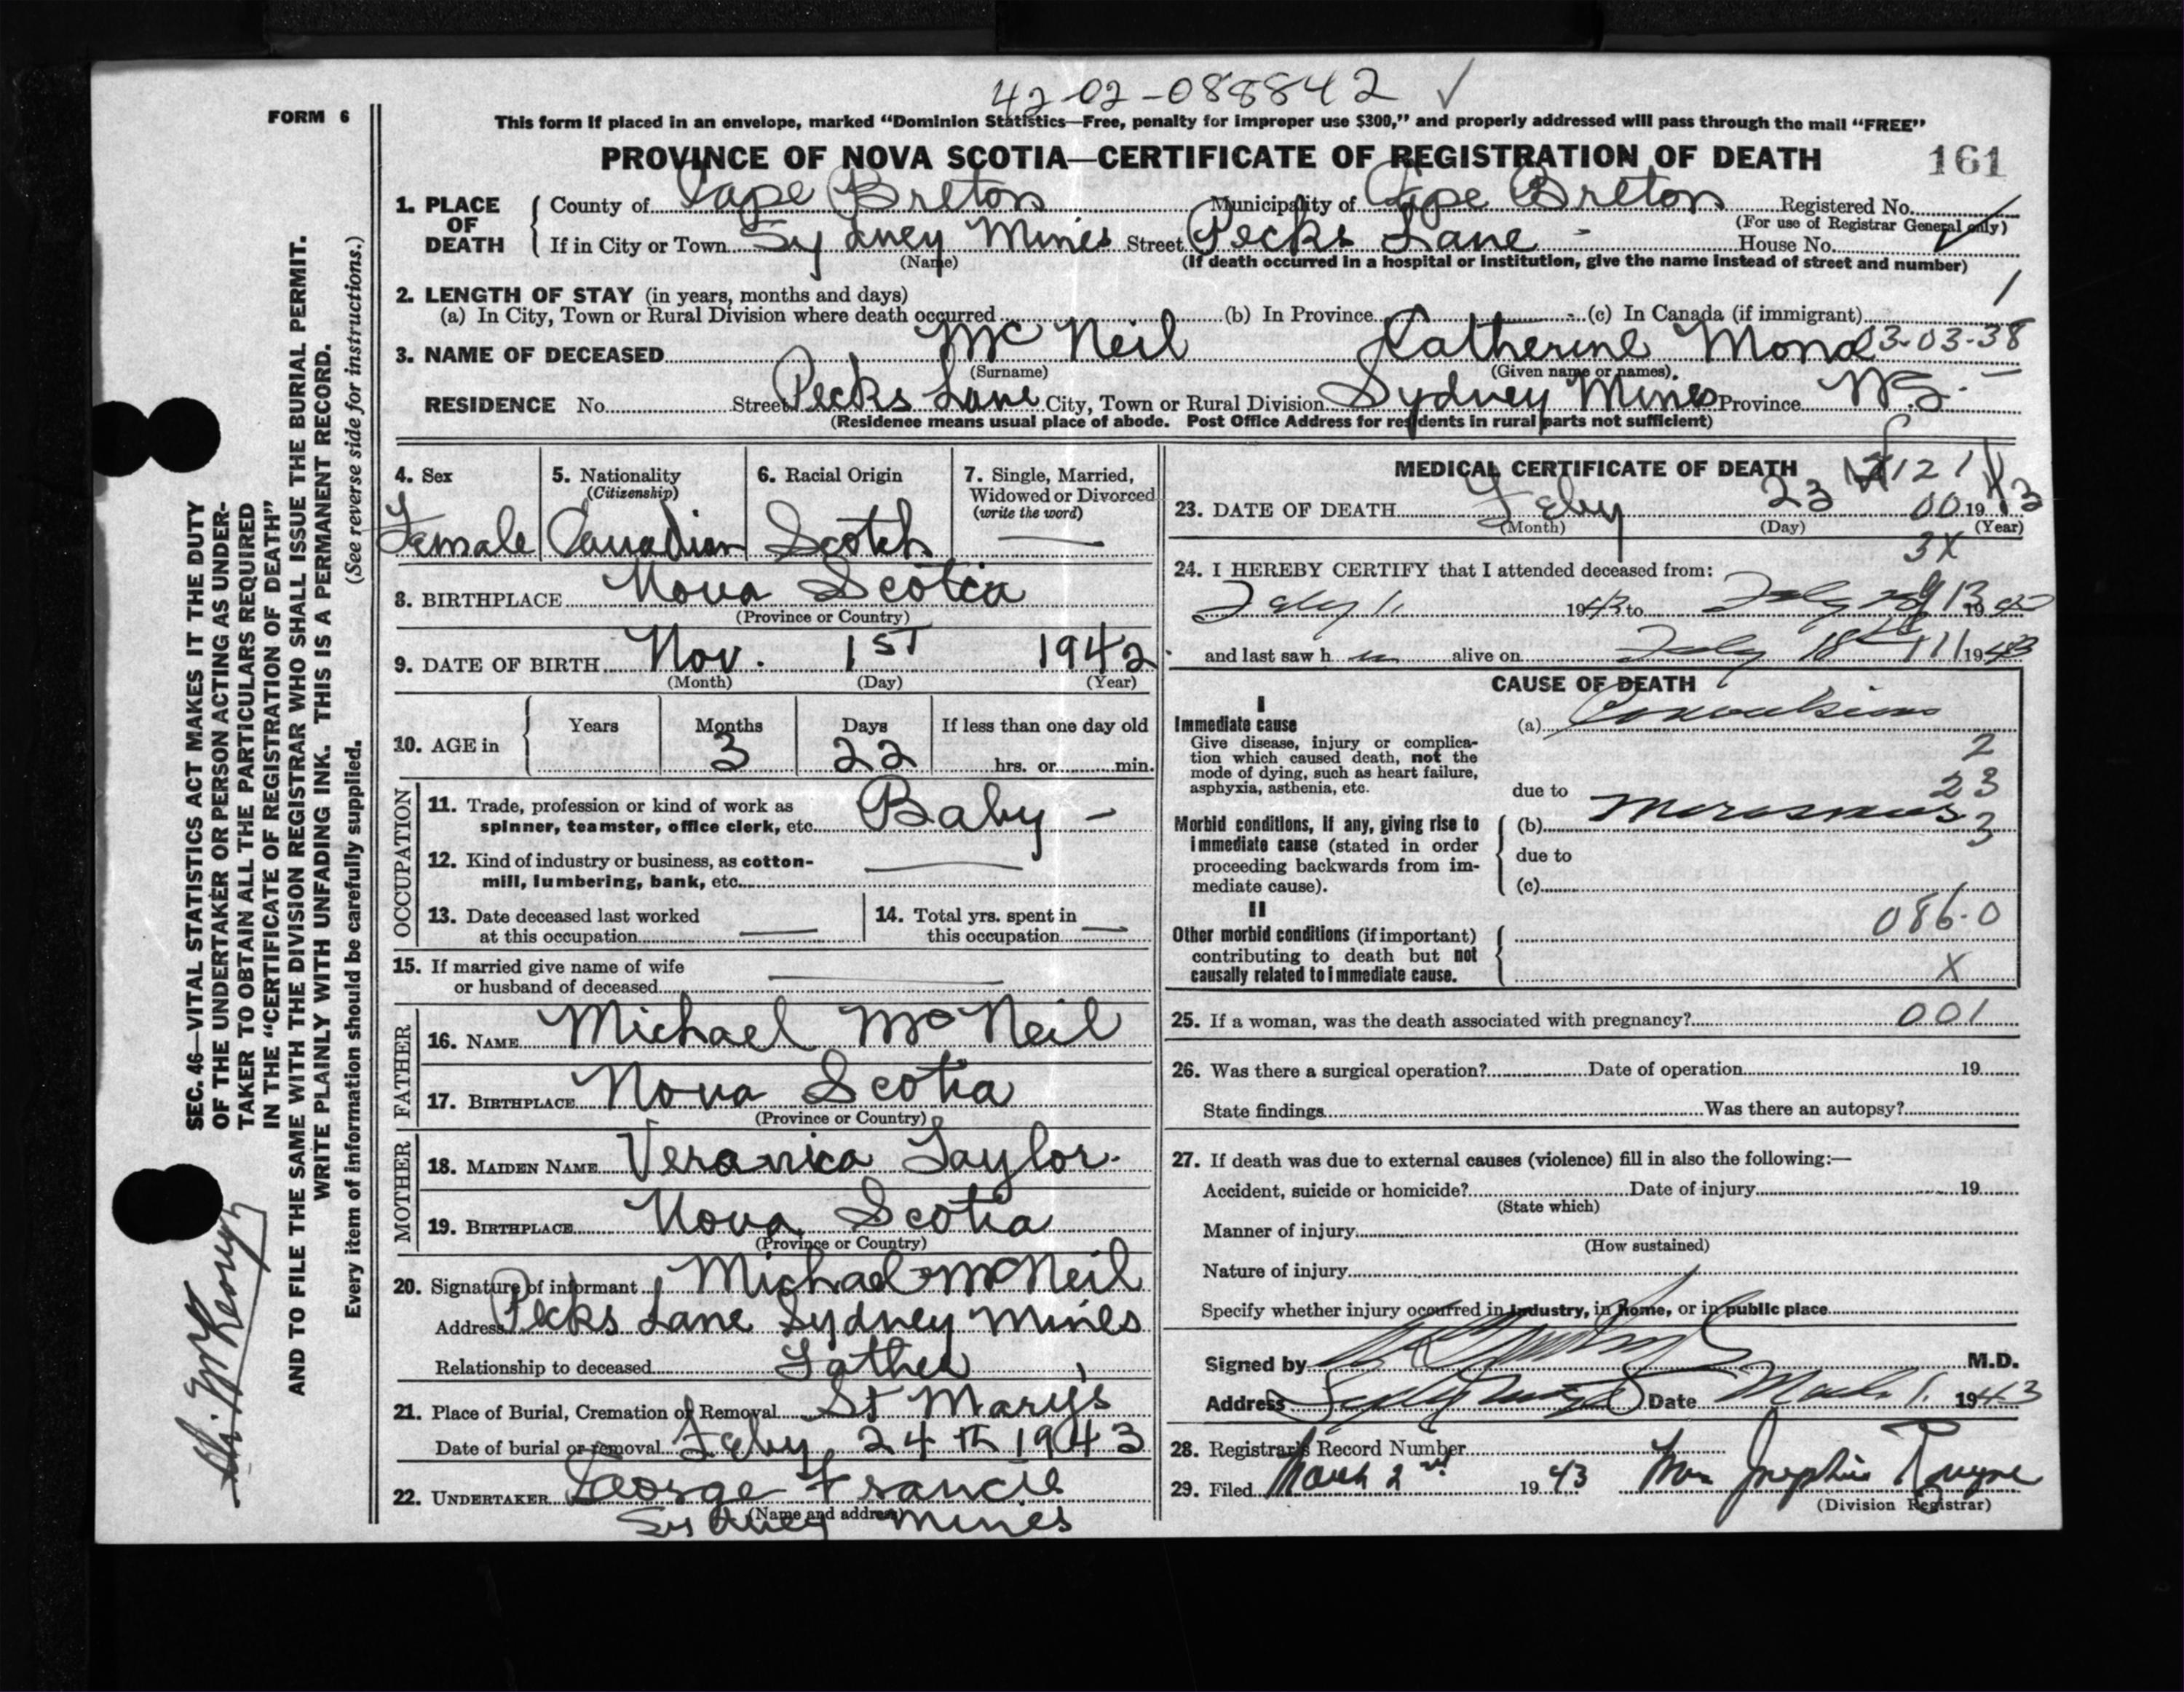 42-02-088842 ✓
FORM 6
This form if placed in an envelope, marked “Dominion Statistics—Free, penalty for improper use $300,” and properly addressed will pass through the mail “FREE”
PROVINCE OF NOVA SCOTIA—CERTIFICATE OF REGISTRATION OF DEATH 161
1. PLACE OF DEATH { County of Cape Breton Municipality of Cape Breton Registered No.
(For use of Registrar General only)
If in City or Town Sydney Mines Street Pecks Lane - House No.
(Name) (If death occurred in a hospital or institution, give the name instead of street and number)
2. LENGTH OF STAY (in years, months and days) 1
(a) In City, Town or Rural Division where death occurred (b) In Province (c) In Canada (if immigrant)
3. NAME OF DECEASED McNeil Catherine Mona 03-03-38
(Surname) (Given name or names)
RESIDENCE No. Street Pecks Lane City, Town or Rural Division Sydney Mines Province N.S. -
(Residence means usual place of abode. Post Office Address for residents in rural parts not sufficient)
4. Sex Female
5. Nationality (Citizenship) Canadian
6. Racial Origin Scotch
7. Single, Married, Widowed or Divorced (write the word) —
8. BIRTHPLACE Nova Scotia
(Province or Country)
9. DATE OF BIRTH Nov. 1ST 1942
(Month) (Day) (Year)
10. AGE in { Years Months 3 Days 22 If less than one day old
hrs. or min.
OCCUPATION
11. Trade, profession or kind of work as
spinner, teamster, office clerk, etc. Baby -
12. Kind of industry or business, as cotton-
mill, lumbering, bank, etc. —
13. Date deceased last worked
at this occupation —
14. Total yrs. spent in
this occupation —
15. If married give name of wife
or husband of deceased —
FATHER
16. NAME Michael McNeil
17. BIRTHPLACE Nova Scotia
(Province or Country)
MOTHER
18. MAIDEN NAME Veronica Taylor.
19. BIRTHPLACE Nova Scotia
(Province or Country)
20. Signature of informant Michael McNeil
Address Pecks Lane Sydney Mines
Relationship to deceased Father
21. Place of Burial, Cremation or Removal St Mary's
Date of burial or removal Feby 24th 1943
22. UNDERTAKER George Francis
(Name and address)
Sydney Mines
MEDICAL CERTIFICATE OF DEATH 2121
23. DATE OF DEATH Feby 23 00 1943
(Month) (Day) (Year)
3X
24. I HEREBY CERTIFY that I attended deceased from:
Feby 1. 1943 to Feby 1943
and last saw h alive on Feby 18 1943
CAUSE OF DEATH
I
Immediate cause (a) Convulsions
Give disease, injury or complica-
tion which caused death, not the
mode of dying, such as heart failure,
asphyxia, asthenia, etc.
2
23
3
due to
Morbid conditions, if any, giving rise to
immediate cause (stated in order
proceeding backwards from im-
mediate cause).
(b) Marasmus
due to
(c)
II
Other morbid conditions (if important)
contributing to death but not
causally related to immediate cause.
086-0
X
25. If a woman, was the death associated with pregnancy? 001
26. Was there a surgical operation? Date of operation 19
State findings Was there an autopsy?
27. If death was due to external causes (violence) fill in also the following:—
Accident, suicide or homicide? Date of injury 19
(State which)
Manner of injury
(How sustained)
Nature of injury
Specify whether injury occurred in industry, in home, or in public place
Signed by M.D.
Address Date March 1. 1943
28. Registrar's Record Number
29. Filed March 2nd 1943 Mrs Josephine
(Division Registrar)
SEC. 46—VITAL STATISTICS ACT MAKES IT THE DUTY
OF THE UNDERTAKER OR PERSON ACTING AS UNDER-
TAKER TO OBTAIN ALL THE PARTICULARS REQUIRED
IN THE “CERTIFICATE OF REGISTRATION OF DEATH”
AND TO FILE THE SAME WITH THE DIVISION REGISTRAR WHO SHALL ISSUE THE BURIAL PERMIT.
WRITE PLAINLY WITH UNFADING INK. THIS IS A PERMANENT RECORD.
Every item of information should be carefully supplied. (See reverse side for instructions.)